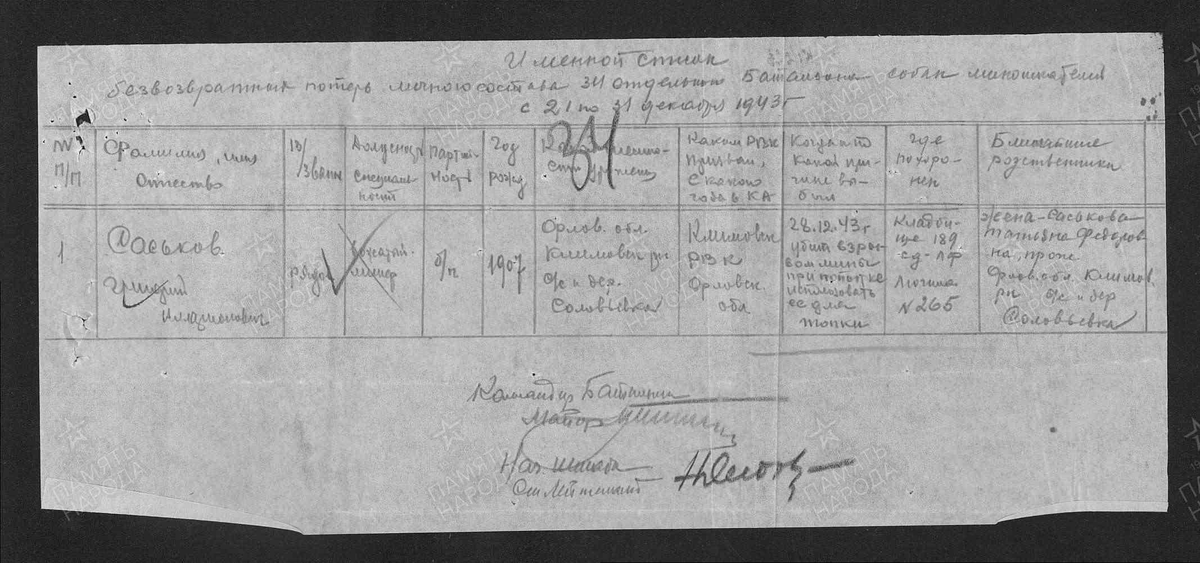 Именной список
безвозвратных потерь личного состава 34 отдельного Батальона собак миноискателей
с 21 по 31 декабря 1943 г
№ п/п
Фамилия, имя
Отчество
в/звание
Должность
специальность
Партийность
Год рожд
34
Каким РВК
призван,
с какого
года в КА
Когда и по
какой при-
чине вы-
был
Где
похоро-
нен
Ближайшие
родственники
1
Саськов
Илларионович
рядов
вожатый
минер
б/п
1907
Орлов. обл
Климовск рн
с/с и дер.
Соловьевка
Климовск
РВК
Орловск.
обл
28.12.43 г
убит взры-
вом мины
при попытке
использовать
ее для
топки
Кладби-
ще 189
сд - пф
Могила
№ 265
жена - Саськова
Татьяна Федоров
на, прож
Орлов. обл. Климов.
рн с/с и дер
Соловьевка
Командир Батальона
майор
Нач штаба
Ст Лейтенант
ПАМЯТЬ НАРОДА